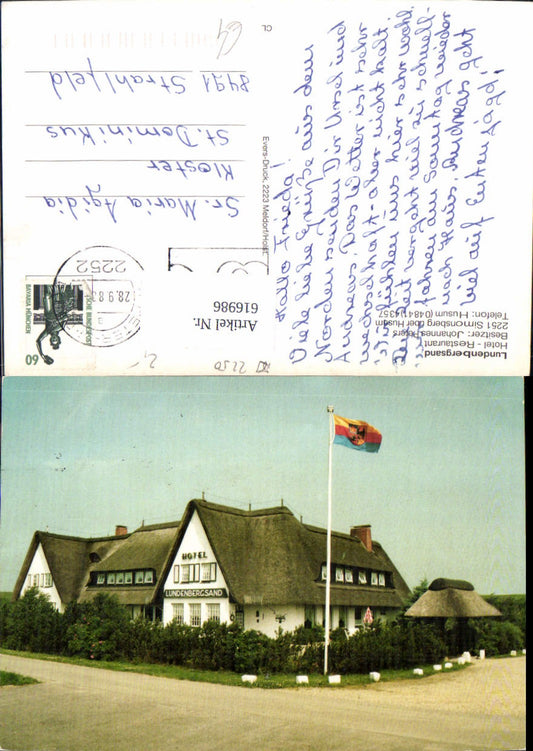 Lundenbergsand
Hotel - Restaurant
Besitzer: Johannes Peters
2251 Simonsberg über Husum
Telefon: Husum (04841) 4357
Hallo Frieda!
Viele liebe Grüße aus dem
Norden senden Dir Ursel und
Andreas. Das Wetter ist sehr
wechselhaft aber nicht kalt.
Wir fühlen uns hier sehr wohl.
Die Zeit vergeht viel zu schnell.
Wir fahren am Sonntag wieder
nach Haus. Andreas geht
viel auf Entenjagd!
Evers-Druck, 2223 Meldorf/Holst.
CL
60
DEUTSCHE BUNDESPOST
BAVARIA MÜNCHEN
2252
28.9.83
Artikel Nr.
616986
2250
Sr. Maria Agidia
Kloster
St. Dominikus
8491 Strahlfeld
HOTEL
LUNDENBERGSAND